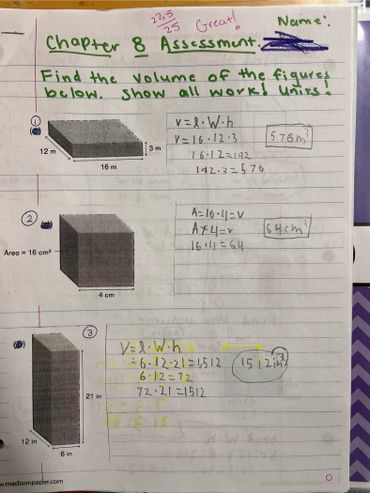 22.5/25 Great! Name:
Chapter 8 Assessment.
Find the volume of the figures
below. show all work! units!
1
V=l·W·h
V=16·12·3
16·12=192
192·3=576
576m³
12 m
16 m
3 m
2
Area = 16 cm²
4 cm
A=16·4=v
A×4=v
16·4=64
64cm³
3
V=l·W·h
=6·12·21=1512
6·12=72
72·21=1512
1512in³
21 in
12 in
6 in
www.madisonpaper.com